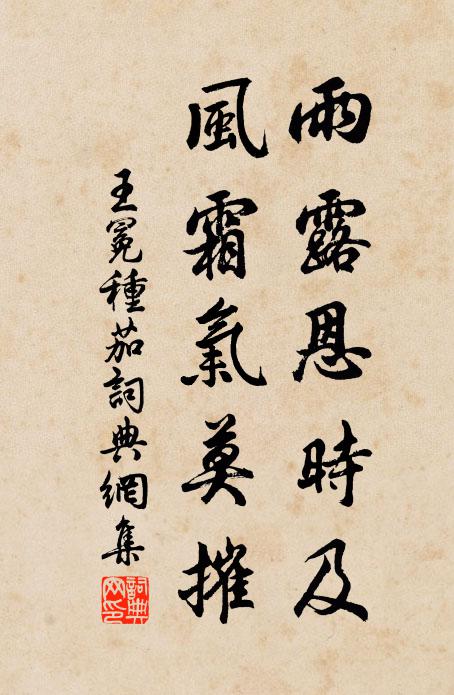 雨露恩時及
風霜氣莫摧
王冕種茄詞典網集
詞典網印